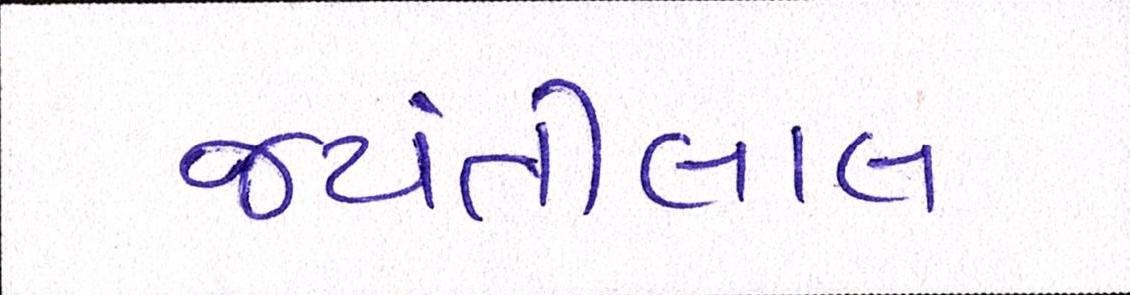 જયંતીલાલ